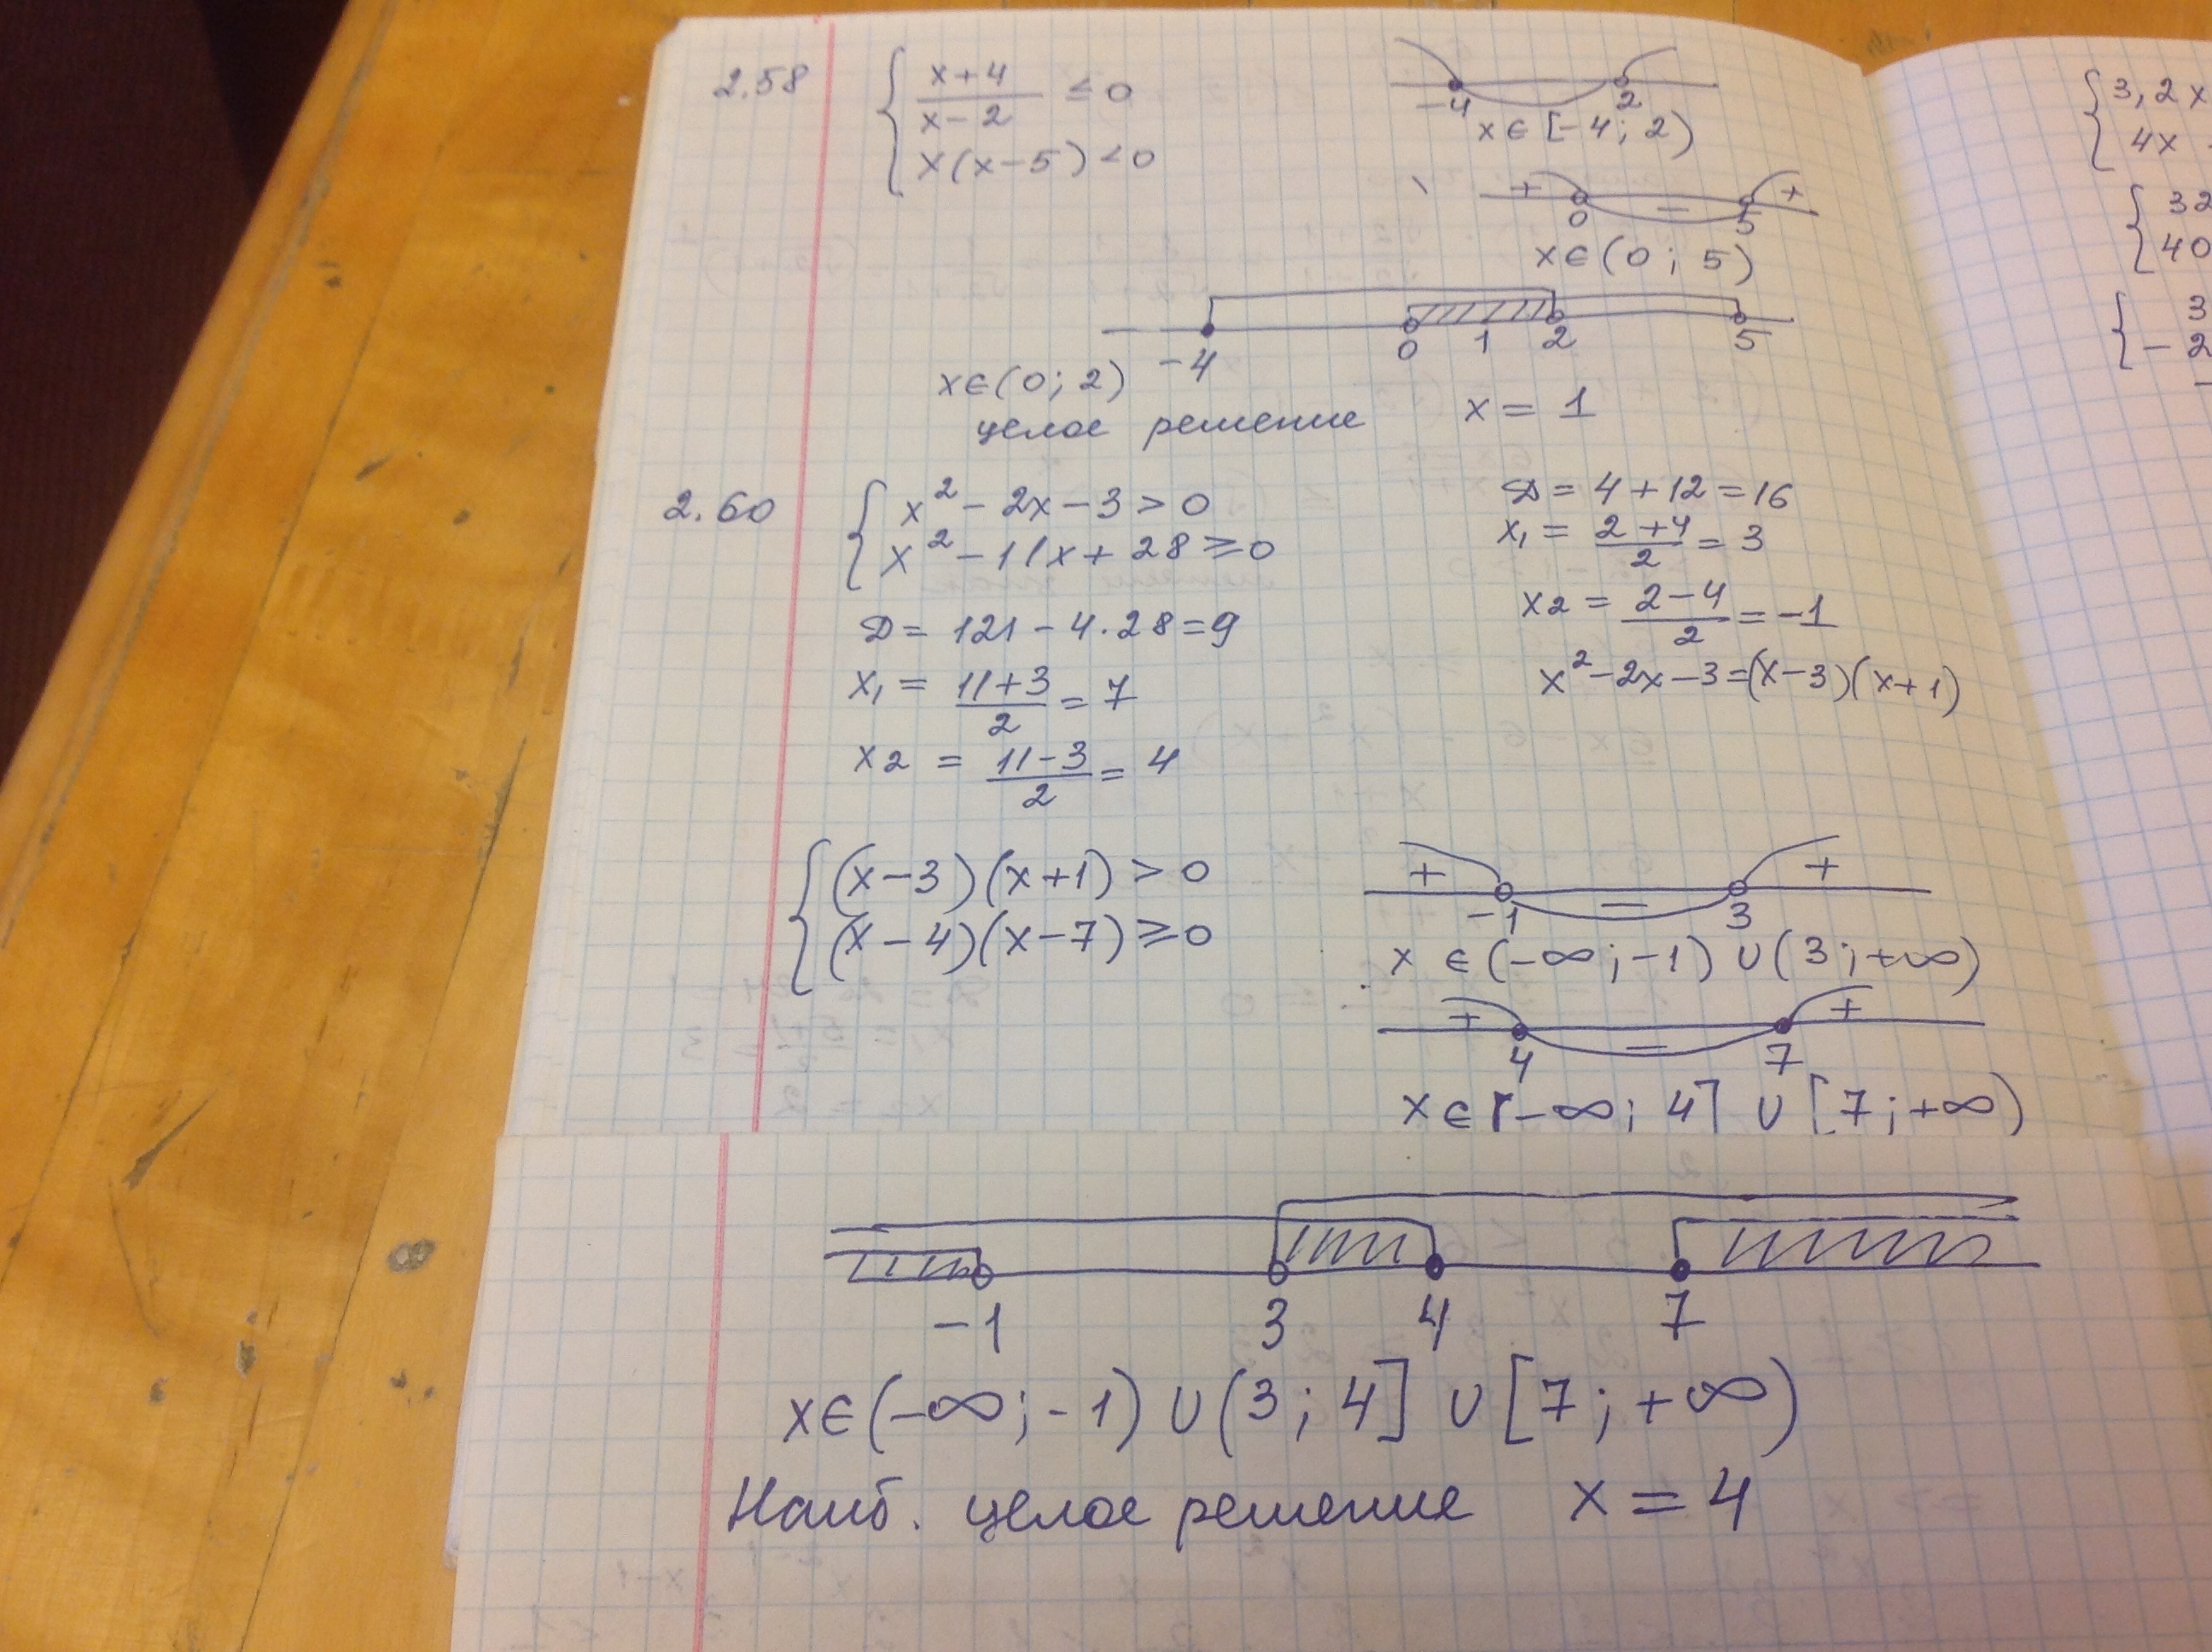 2.58
{ (x+4)/(x-2) ≤ 0
x(x-5) < 0
-4 2
x ∈ [-4; 2)
+ 0 - 5 +
x ∈ (0; 5)
-4 0 1 2 5
x ∈ (0; 2)
целое решение x = 1
2.60
{ x² - 2x - 3 > 0
x² - 11x + 28 ≥ 0
D = 121 - 4·28 = 9
x₁ = (11+3)/2 = 7
x2 = (11-3)/2 = 4
D = 4 + 12 = 16
x₁ = (2+4)/2 = 3
x2 = (2-4)/2 = -1
x² - 2x - 3 = (x-3)(x+1)
{ (x-3)(x+1) > 0
(x-4)(x-7) ≥ 0
+ -1 - 3 +
x ∈ (-∞; -1) ∪ (3; +∞)
+ 4 - 7 +
x ∈ [-∞; 4] ∪ [7; +∞)
-1 3 4 7
x ∈ (-∞; -1) ∪ (3; 4] ∪ [7; +∞)
Наиб. целое решение x = 4
{ 3,2x
4x
{ 32
40
{ 3
-2